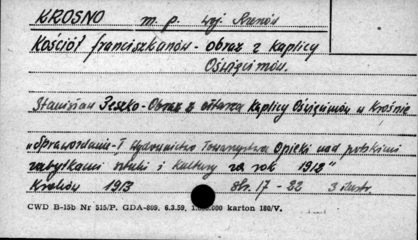 KROSNO m. p. woj. Rzeszów
Kościół franciszkanów - obraz z kaplicy
Oświęcimów.
Stanisław - Obraz z ołtarza kaplicy Oświęcimów w Krośnie
„Sprawozdanie Wydawnictwo Towarzystwa Opieki nad polskimi
zabytkami sztuki i kultury za rok 1912"
Kraków 1913 str. 17 - 22 3 ilustr.
CWD B-15b Nr 515/P. GDA-809. 6.3.59. karton 180/V.